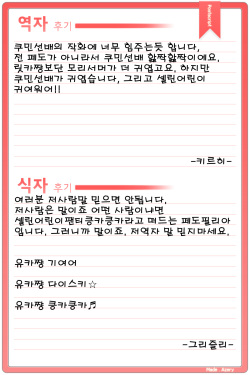 Postscript
역자 후기
쿠민선배의 작화에 너무 힘주는듯 합니다,
전 페도가 아니라서 쿠민선배 할짝할짝이에요,
릿카짱보단 모리서머가 더 귀엽고요, 하지만
쿠민선배가 귀엽습니다, 그리고 셀린어린이
귀여워어!!
-키르히-
식자 후기
여러분 저사람말 믿으면 안됩니다.
저사람은 말이죠 어떤 사람이냐면
셀린어린이팬티킁카킁카라고 떠드는 페도필리아
입니다, 그러니까 말이죠, 저역자 말 믿지마세요,
유카짱 기여어
유카짱 다이스키☆
유카짱 쿵카쿵카♬
-그리즐리-